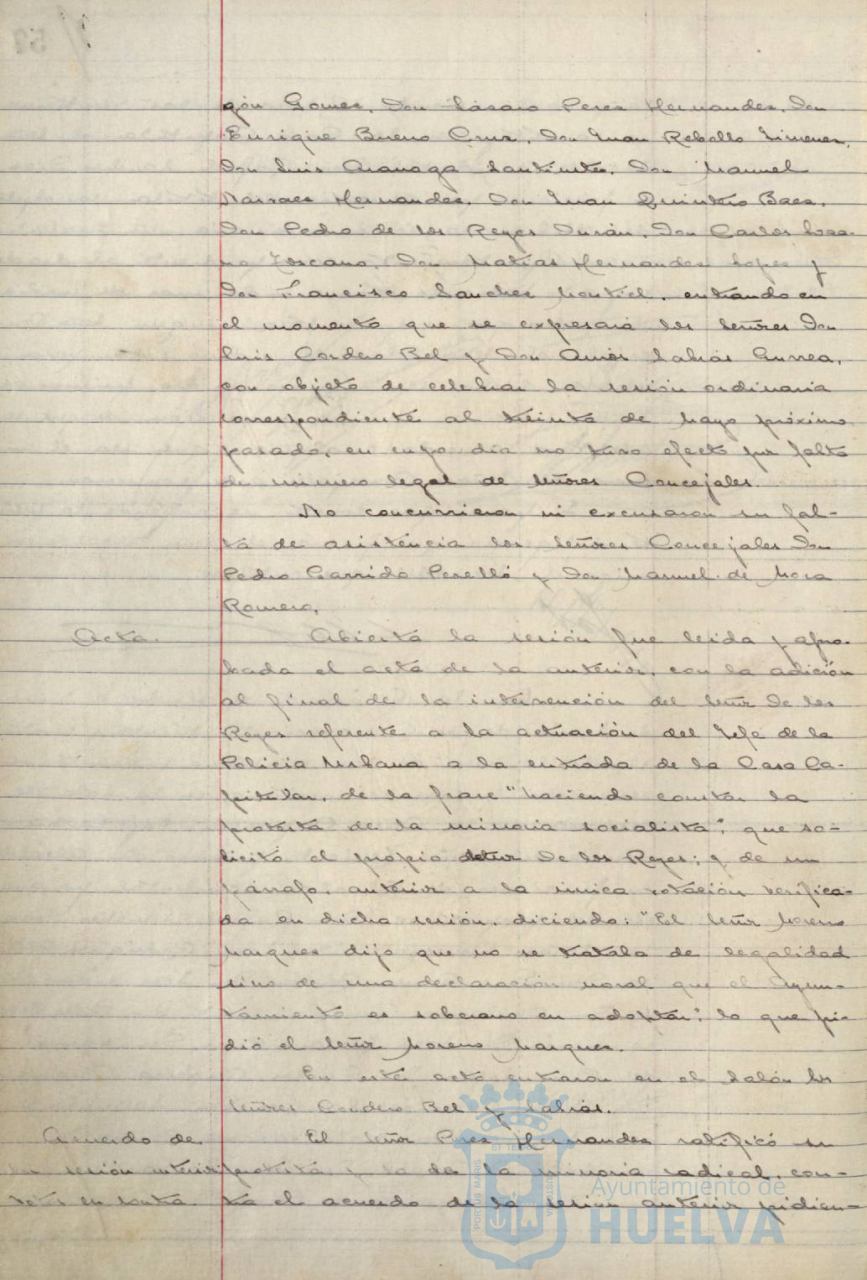 gón Gomez, Don Lázaro Perez Hernandez, Don
Enrique Bueno Cruz, Don Juan Rebollo Jimenez,
Don Luis Don Manuel
Narvaez Hernandez, Don Juan Quintero Baez,
Don Pedro de los Reyes Durán, Don Carlos Loza-
no Toscano, Don Matías Hernandez Lopez y
Don Francisco Sanchez Montiel, entrando en
el momento que se expresará los Señores Don
Luis Cordero Bel y Don Amós Sabrás Gurrea,
con objeto de celebrar la sesión ordinaria
correspondiente al treinta de Mayo próximo
pasado, en cuyo día no tuvo efecto por falta
de número legal de Señores Concejales.
No concurrieron ni excusaron su fal-
ta de asistencia los Señores Concejales Don
Pedro Garrido Perelló y Don Manuel de Mora
Romero.
Acta.
Abierta la sesión fue leida y apro-
bada el acta de la anterior, con la adición
al final de la intervención del Señor De los
Reyes referente a la actuación del Jefe de la
Policía Urbana a la entrada de la Casa Ca-
pitular, de la frase "haciendo constar la
protesta de la minoria socialista", que so-
licitó el propio Señor De los Reyes; y de un
párrafo, anterior a la única votación verifica-
da en dicha sesión, diciendo: "El Señor Moreno
Marquez dijo que no se trataba de legalidad
sino de una declaración moral que el Ayun-
tamiento es soberano en adoptar", lo que pi-
dió el Señor Moreno Marquez.
En este acto entraron en el Salón los
Señores Cordero Bel y Sabrás.
Acuerdo de
la sesión anterior
en contra
El Señor Perez Hernandez ratificó su
protesta y la de la minoria radical, con-
tra el acuerdo de la sesion anterior pidien-
Ayuntamiento de
HUELVA